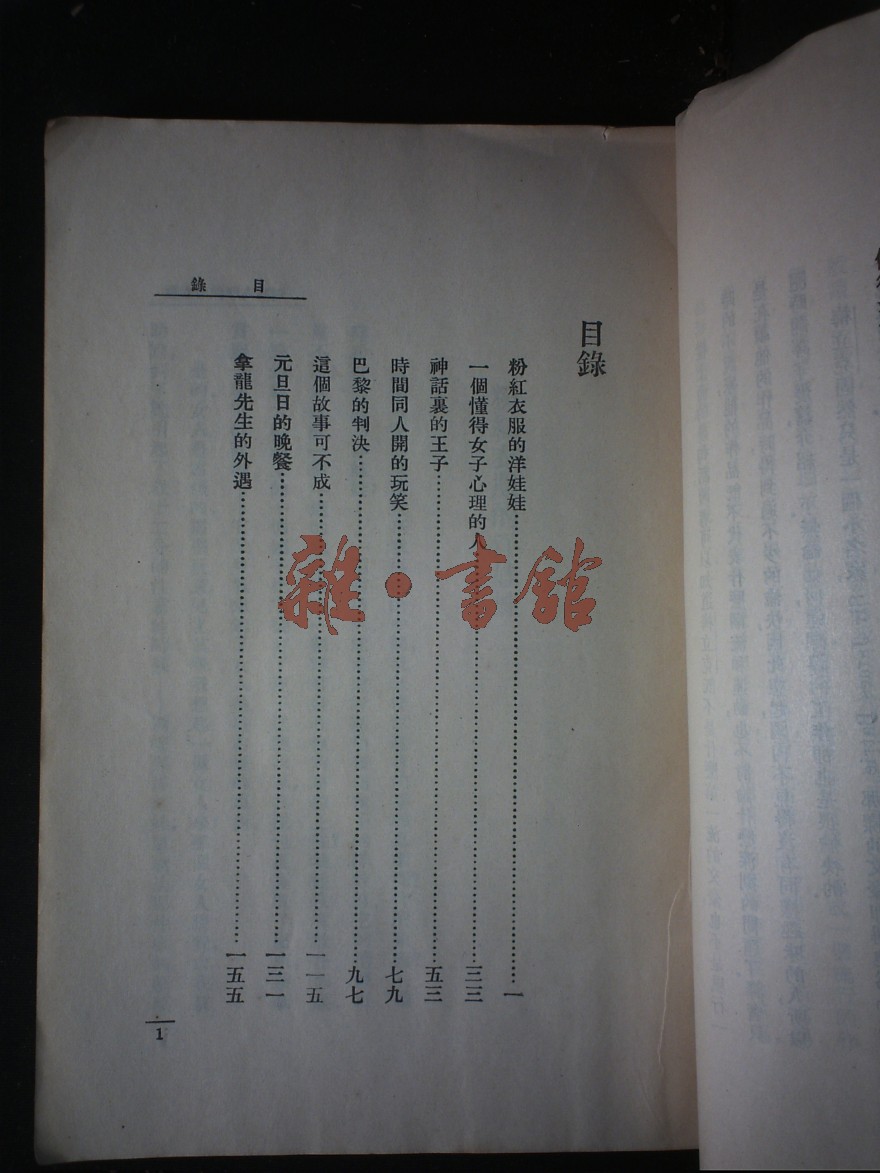 目錄
目錄
粉紅衣服的洋娃娃……一
一個懂得女子心理的人……三三
神話裏的王子……五三
時間同人開的玩笑……七九
巴黎的判決……九七
這個故事可不成……一一五
元旦日的晚餐……一三一
拿龍先生的外遇……一五五
1
雜·書館